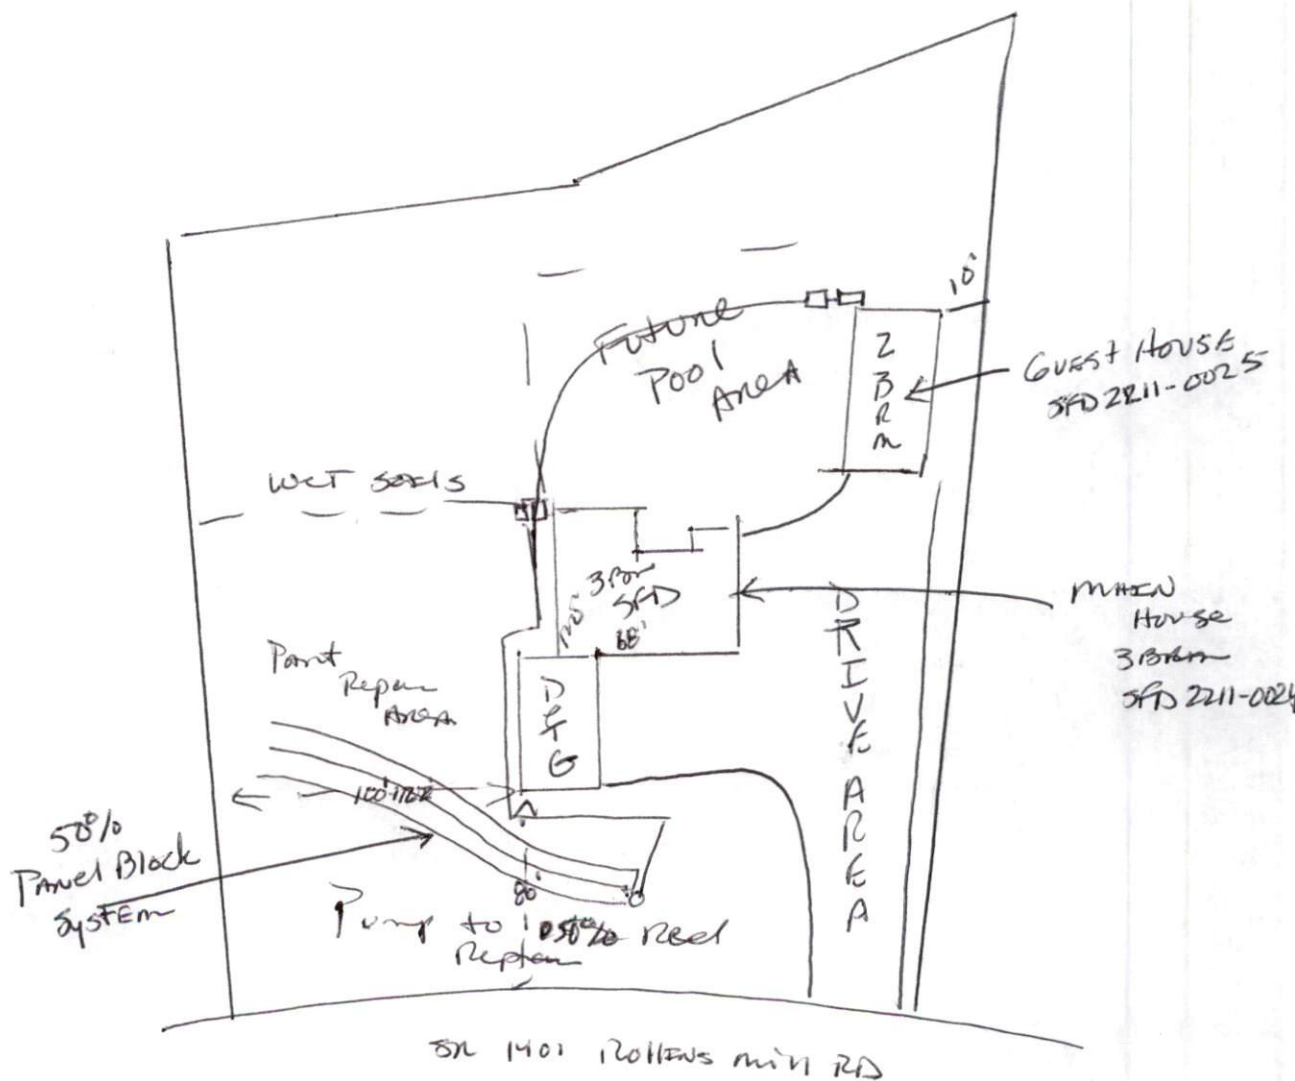 10'
Future
Pool
Area
2
B
R
M
GUEST HOUSE
SFD 2211-0025
WET SOILS
3 Brm
SFD
68'
MAIN
House
3 Brm
SFD 2211-0024
DRIVE AREA
Repair
Area
D
T
G
50%
Panel Block
System
80'
Pump to
Red
SR 1401 Rollins Mill RD